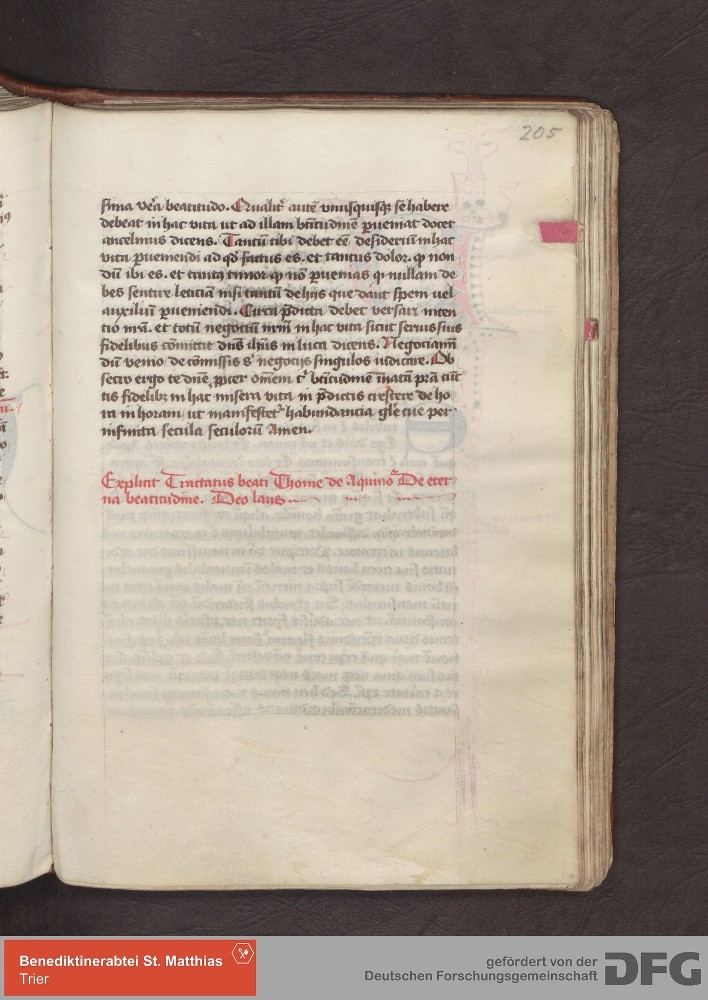 205
sima ur̄a beatitudo. Qualit᷑ aute᷑ unusquisq₃ se habere
debeat in hac vita ut ad illam btītudinē ꝑueniat docet
ancelmus dicens. Tantū tibi debet eē desideriū in hac
vita ꝑueniendi ad qd̄ factus es. et tantus dolor. ꝙ non
dū ibi es. et tantus timor ꝙ nō ꝑuenias ꝙ nullam de
bes sentire leticiā nisi tantū de hijs que dant spem uel
auxiliū ꝑueniendi. Circa p̄dicta debet versari inten
tio nr̄a. et totū negotiū nr̄m in hac vita sicut seruis suis
fidelibus cōmittit dn̄s ih̄us in luca dicens. Negociamī
dū venio / de cōmissis s᷑ negocijs singulos iudicare. Ob
secro ergo te dn̄e ꝓpter oīnem
tis fidelib₃ in hac misera vita in p̄dictis crescere de ho
ra in horam, ut manifestet᷑ habundancia gl̄e tue per
infinita secula seculorū Amen.
Explicit Tractatus beati Thome de Aquino De eter
na beatitudine. Deo laus
Benediktinerabtei St. Matthias
Trier
gefördert von der
Deutschen Forschungsgemeinschaft
DFG